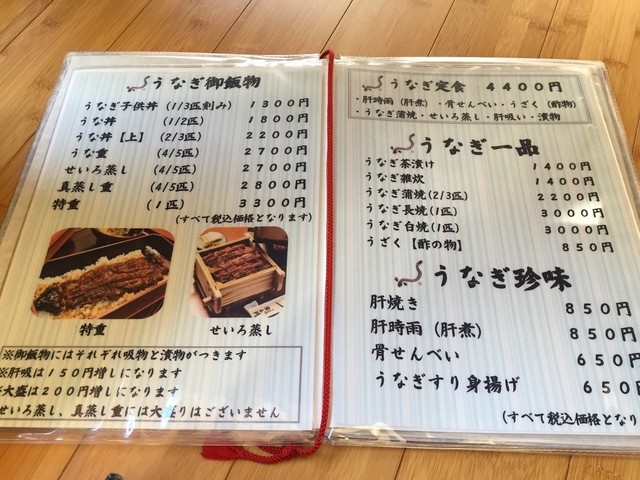 うなぎ御飯物
うなぎ子供丼 (1/3匹刻み) 1300円
うな丼 (1/2匹) 1800円
うな丼【上】 (2/3匹) 2200円
うな重 (4/5匹) 2700円
せいろ蒸し (4/5匹) 2700円
真蒸し重 (4/5匹) 2800円
特重 (1匹) 3300円
(すべて税込価格となります)
特重 せいろ蒸し
※御飯物にはそれぞれ吸物と漬物がつきます
※肝吸は150円増しになります
※大盛は200円増しになります
せいろ蒸し、真蒸し重には大盛りはございません
うなぎ定食 4400円
・肝時雨(肝煮)・骨せんべい・うざく(酢物)
・うなぎ蒲焼・せいろ蒸し・肝吸い・漬物
うなぎ一品
うなぎ茶漬け 1400円
うなぎ雑炊 1400円
うなぎ蒲焼(2/3匹) 2200円
うなぎ長焼(1匹) 3000円
うなぎ白焼(1匹) 3000円
うざく【酢の物】 850円
うなぎ珍味
肝焼き 850円
肝時雨(肝煮) 850円
骨せんべい 650円
うなぎすり身揚げ 650円
(すべて税込価格となり